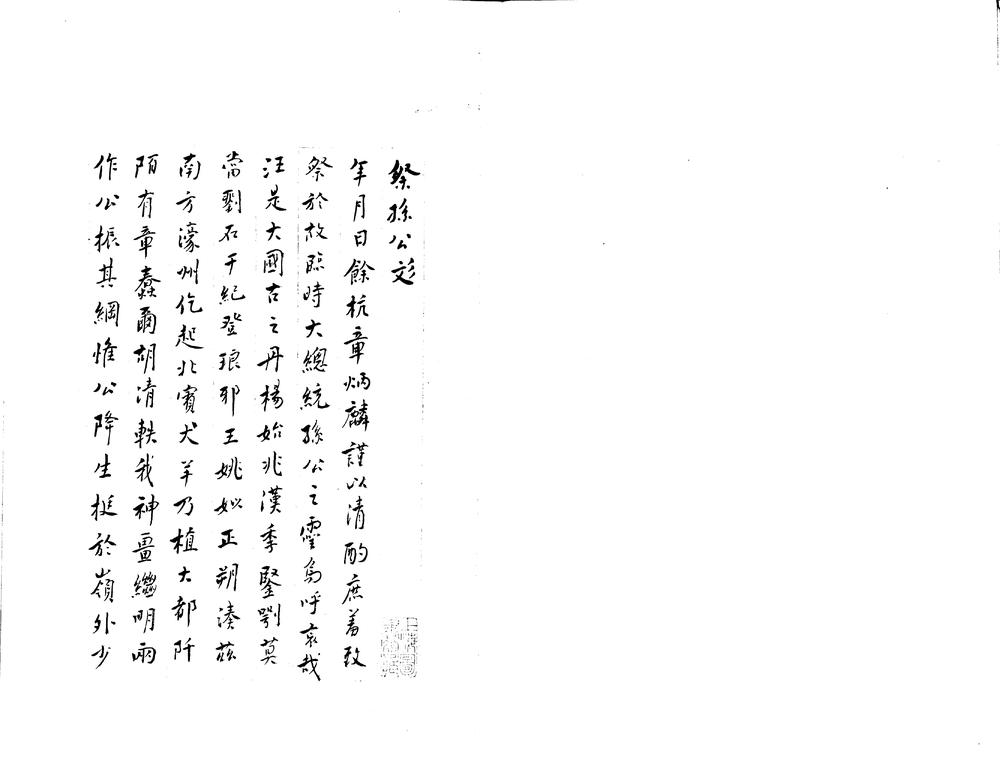 祭孫公文
年月日餘杭章炳麟謹以清酌庶羞致
祭於故臨時大總統孫公之靈烏呼哀哉
汪是大國古之丹楊始兆漢季鋻鄂莫
當劉石干紀登琅邪王姚姒正朔湊茲
南方濠州仡起北賓犬羊乃植大都阡
陌有章蠢爾胡清軼我神畺繼明兩
作公振其綱惟公降生挺於嶺外少